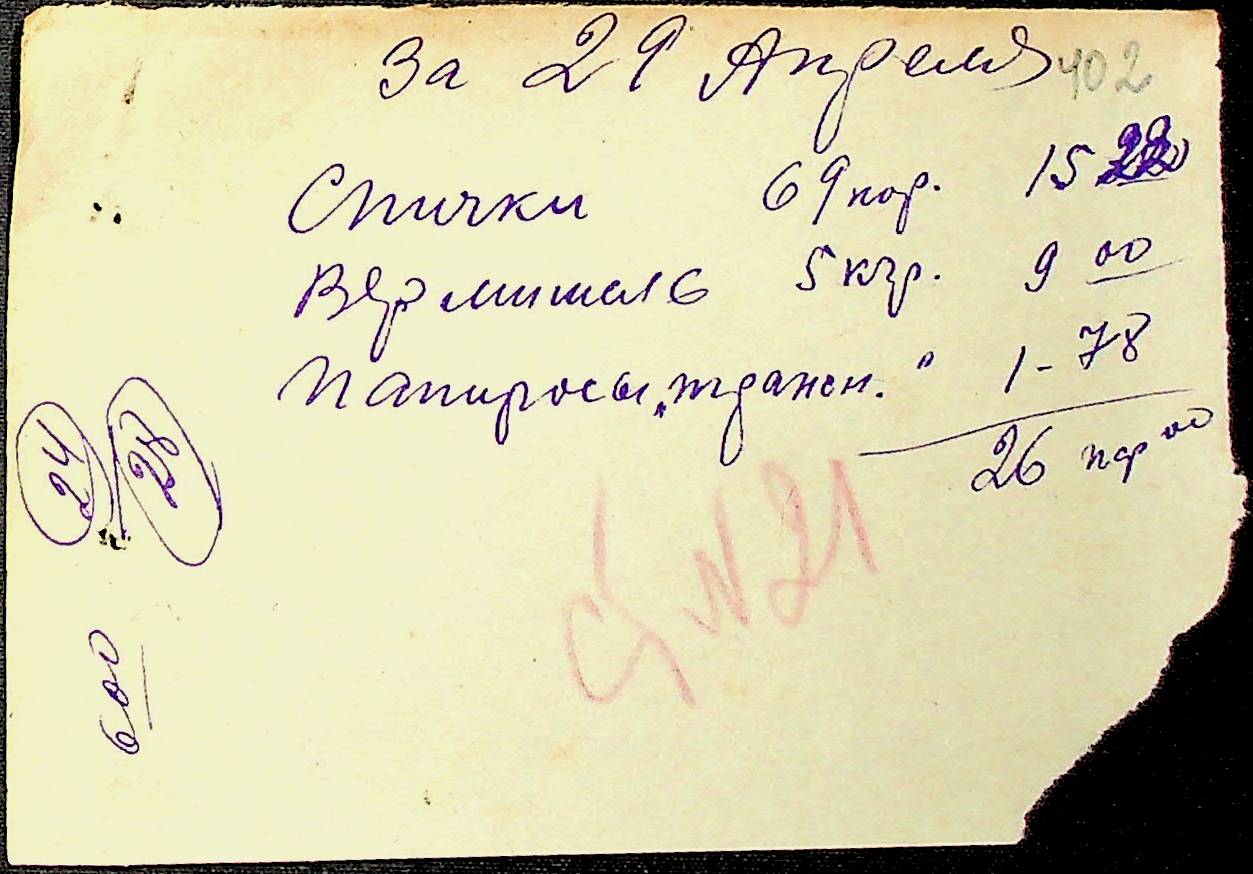 За 29 Апреля 402
Спички 69 кор. 15 22
Вермишель 5 кгр. 9 00
Папиросы „ 1-78
26 00
№ 21
24
28
6 00